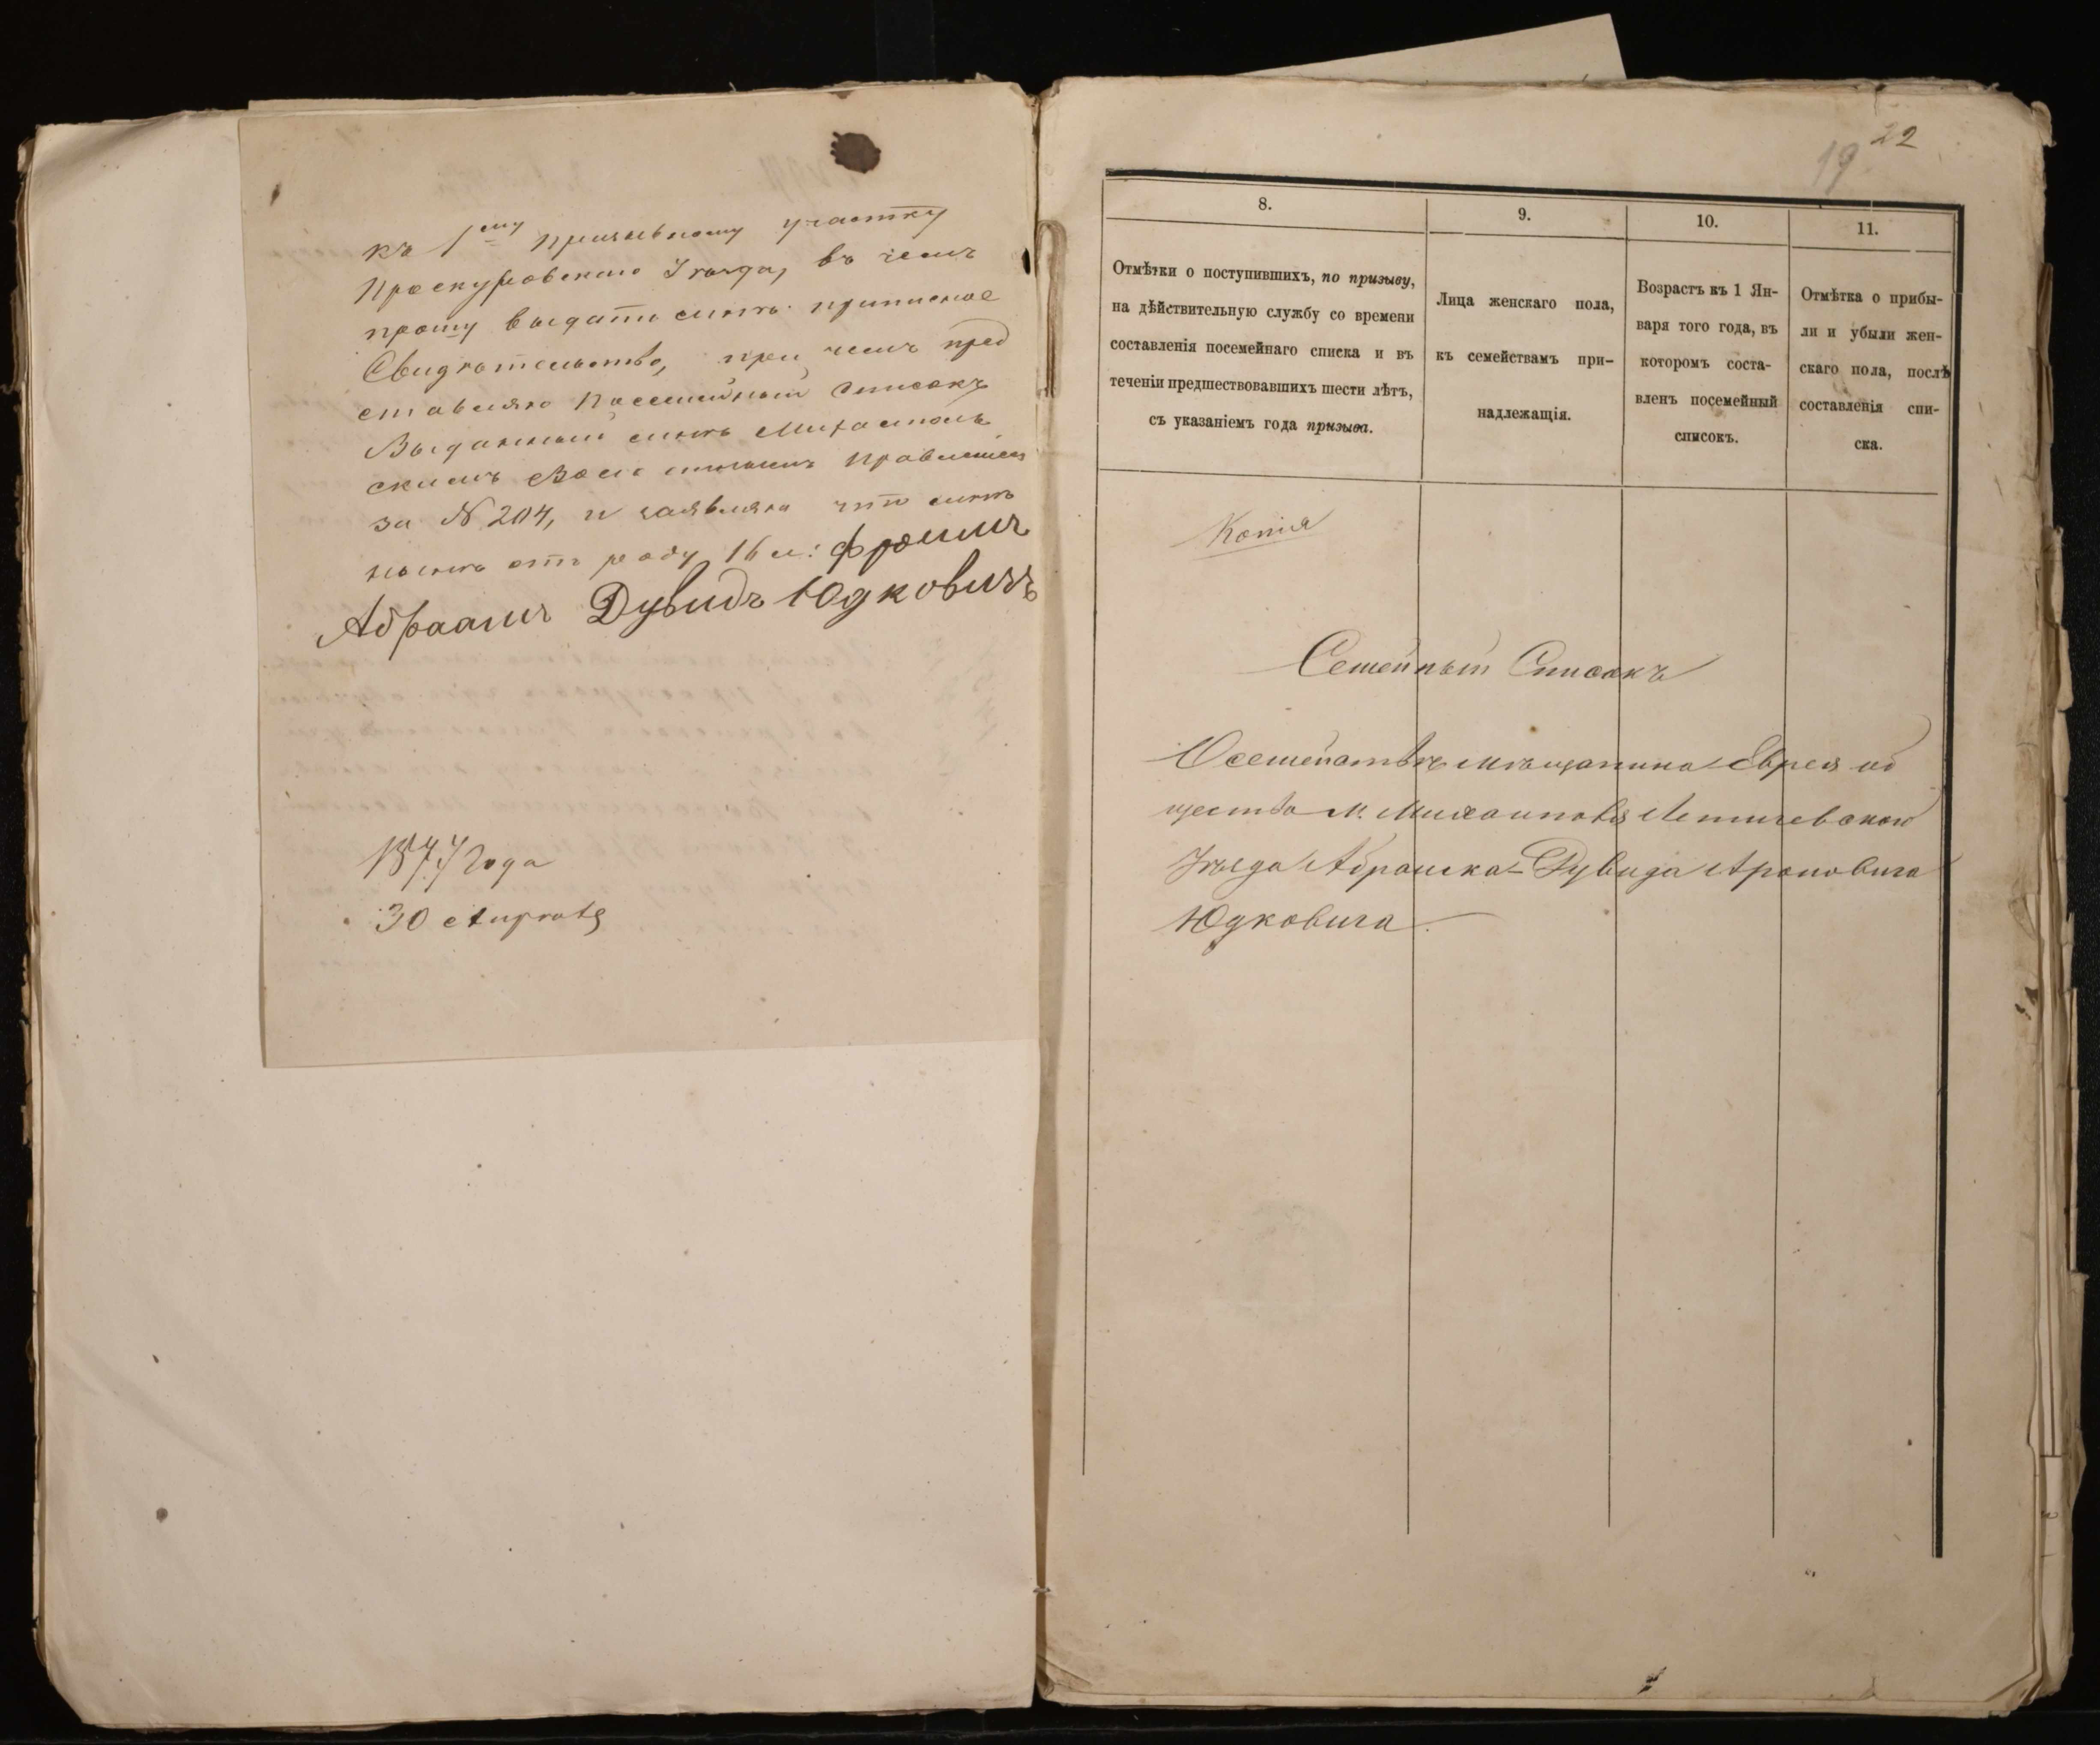 къ 1ему призывному участку
Проскуровскаго Уѣзда, въ чемъ
прошу выдать мнѣ приписное
Свидѣтельство, при чемъ пред
ставляю Посемейный списокъ
Выданный мнѣ Михамполь
скимъ Волостнымъ Правленіем
за № 204, и заявляю что мнѣ
нынѣ отъ роду 16 л:
Абраамъ Дувидъ Юдковичъ
1877 Года
30 Апрѣля
22
19
8.
Отмѣтки о поступившихъ, по призыву,
на дѣйствительную службу со времени
составленія посемейнаго списка и въ
теченіи предшествовавшихъ шести лѣтъ,
съ указаніемъ года призыва.
9.
Лица женскаго пола,
къ семействамъ при-
надлежащія.
10.
Возрастъ къ 1 Ян-
варя того года, въ
которомъ соста-
вленъ посемейный
списокъ.
11.
Отмѣтка о прибы-
ли и убыли жен-
скаго пола, послѣ
составленія спи-
ска.
Копія
Семейный Списокъ
О семействѣ мѣщанина Еврея об
щества м. Михамполя Летичевскаго
Уѣзда Абрамка-Дувида Ароновича
Юдковича.